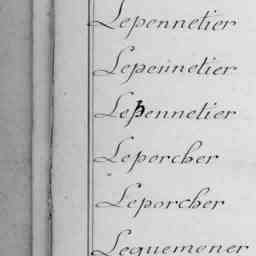 Lepennetier
Lepennetier
Lepennetier
Leporcher
Leporcher
Lequemener